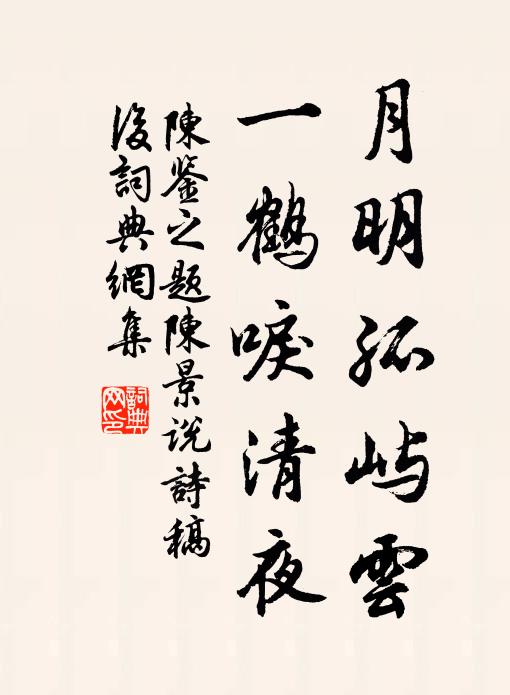 月明孤屿雲
一鶴唳清夜
陳鉴之题陳景说詩稿
後詞典網集
詞典網印